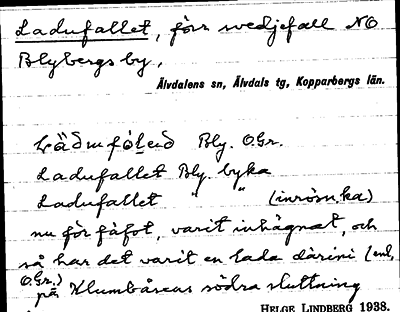 Ladufallet, förr svedjefall NO
Blybergs by.
Älvdalens sn, Älvdals tg, Kopparbergs län.
Bly. OGr.
Ladufallet Bly. byka
Ladufallet " " (inrösn.ka)
nu för fäfot, varit inhägnat, och
så har det varit en lada därini (enl.
OGr.)
på Klumbåsens södra sluttning
HELGE LINDBERG 1938.